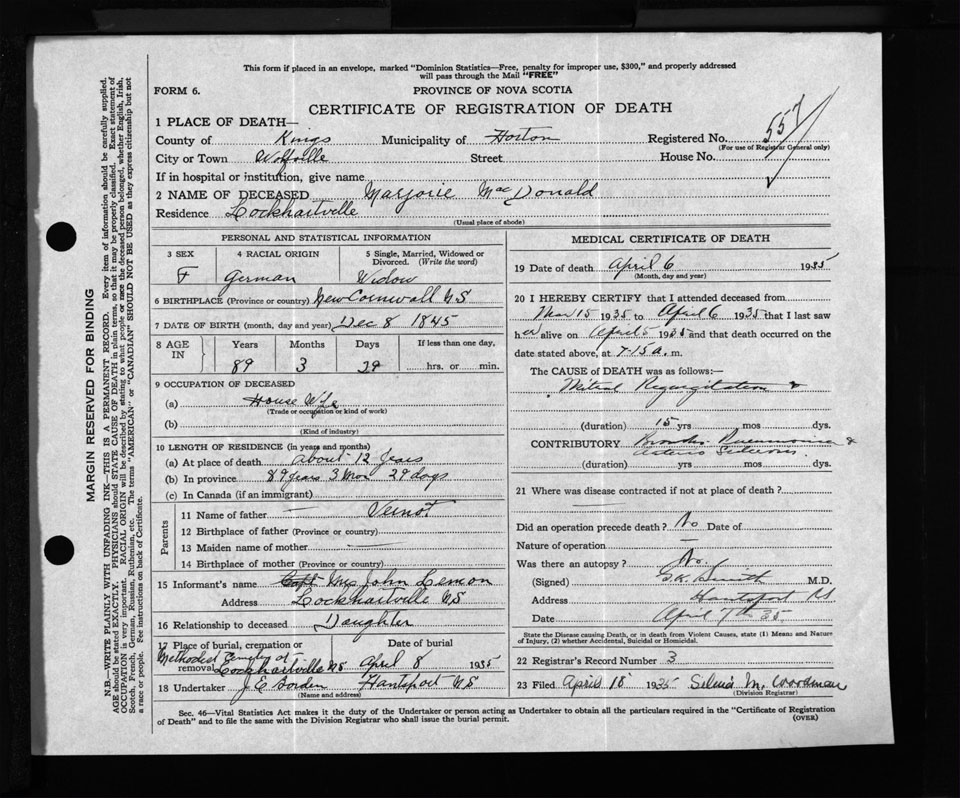 This form if placed in an envelope, marked "Dominion Statistics—Free, penalty for improper use, $300," and properly addressed
will pass through the Mail "FREE"
FORM 6. PROVINCE OF NOVA SCOTIA
CERTIFICATE OF REGISTRATION OF DEATH
1 PLACE OF DEATH—
County of Kings Municipality of Horton Registered No. 557
(For use of Registrar General only)
City or Town Wolfville Street House No.
If in hospital or institution, give name
2 NAME OF DECEASED Marjorie MacDonald
Residence Lockhartville
(Usual place of abode)
PERSONAL AND STATISTICAL INFORMATION
3 SEX 4 RACIAL ORIGIN 5 Single, Married, Widowed or Divorced. (Write the word)
F German Widow
6 BIRTHPLACE (Province or country) New Cornwall NS
7 DATE OF BIRTH (month, day and year) Dec 8 1845
8 AGE IN Years Months Days If less than one day,
89 3 29 hrs. or min.
9 OCCUPATION OF DECEASED
(a) House Wife
(Trade or occupation or kind of work)
(b)
(Kind of industry)
10 LENGTH OF RESIDENCE (in years and months)
(a) At place of death about 12 Years
(b) In province 89 years 3 Mos 29 days
(c) In Canada (if an immigrant)
Parents
11 Name of father — Veinot
12 Birthplace of father (Province or country)
13 Maiden name of mother —
14 Birthplace of mother (Province or country)
15 Informant's name Mrs John Lemon
Address Lockhartville NS
16 Relationship to deceased Daughter
17 Place of burial, cremation or removal Date of burial
Methodist Cemetery of Lockhartville NS April 8 1935
18 Undertaker J E Borden Hantsport NS
(Name and address)
MEDICAL CERTIFICATE OF DEATH
19 Date of death April 6 1935
(Month, day and year)
20 I HEREBY CERTIFY that I attended deceased from
Mar 15 1935 to April 6 1935 that I last saw
her alive on April 5 1935 and that death occurred on the
date stated above, at 7-15 a. m.
The CAUSE of DEATH was as follows:—
Mitral Regurgitation &
(duration) 15 yrs mos dys.
CONTRIBUTORY Broncho Pneumonia &
(duration) yrs mos dys.
21 Where was disease contracted if not at place of death?
Did an operation precede death? No Date of
Nature of operation —
Was there an autopsy? No
(Signed) Smith M.D.
Address Hantsport
Date April 7th 35
State the Disease causing Death, or in death from Violent Causes, state (1) Means and Nature
of Injury, (2) whether Accidental, Suicidal or Homicidal.
22 Registrar's Record Number 3
23 Filed April 18 1935 M. Woodman
(Division Registrar)
Sec. 46—Vital Statistics Act makes it the duty of the Undertaker or person acting as Undertaker to obtain all the particulars required in the "Certificate of Registration
of Death" and to file the same with the Division Registrar who shall issue the burial permit. (OVER)
MARGIN RESERVED FOR BINDING
N.B.—WRITE PLAINLY WITH UNFADING INK—THIS IS A PERMANENT RECORD. Every item of information should be carefully supplied.
AGE should be stated EXACTLY. PHYSICIANS should STATE CAUSE OF DEATH in plain terms, so that it may be properly classified. Exact statement of
OCCUPATION is very important. RACIAL ORIGIN will be described by stating to what people or race the deceased person belonged, whether English, Irish,
Scotch, French, German, Russian, Ruthenian, etc. The terms "AMERICAN" or "CANADIAN" SHOULD NOT BE USED as they express citizenship but not
a race or people. See instructions on back of Certificate.